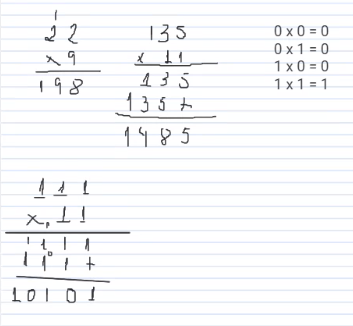 1
22
x 9
198
135
x 11
135
135+
1485
0 x 0 = 0
0 x 1 = 0
1 x 0 = 0
1 x 1 = 1
111
x. 11
111
111+
10101